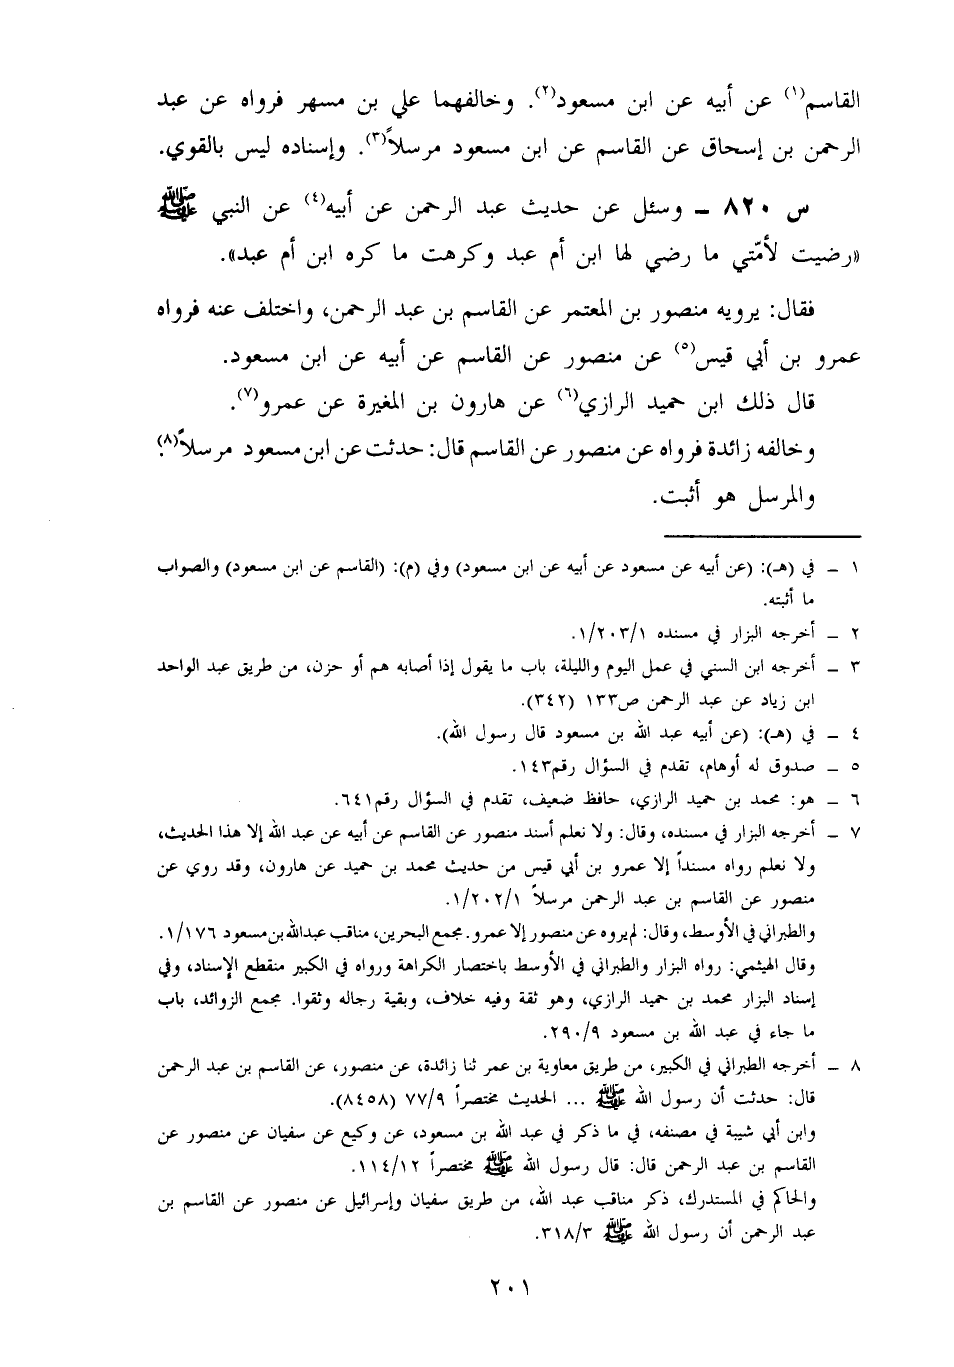 القاسم(١) عن أبيه عن ابن مسعود(٢). وخالفهما علي بن مسهر فرواه عن عبد
الرحمن بن إسحاق عن القاسم عن ابن مسعود مرسلاً(٣). وإسناده ليس بالقوي.
س ٨٢٠ ـ وسئل عن حديث عبد الرحمن عن أبيه(٤) عن النبي ﷺ
«رضيت لأمّتي ما رضي لها ابن أم عبد وكرهت ما كره ابن أم عبد».
فقال: يرويه منصور بن المعتمر عن القاسم بن عبد الرحمن، واختلف عنه فرواه
عمرو بن أبي قيس(٥) عن منصور عن القاسم عن أبيه عن ابن مسعود.
قال ذلك ابن حميد الرازي(٦) عن هارون بن المغيرة عن عمرو(٧).
وخالفه زائدة فرواه عن منصور عن القاسم قال: حدثت عن ابن مسعود مرسلاً(٨).
والمرسل هو أثبت.
١ ـ في (هـ): (عن أبيه عن مسعود عن أبيه عن ابن مسعود) وفي (م): (القاسم عن ابن مسعود) والصواب
ما أثبته.
٢ ـ أخرجه البزار في مسنده ١/٢٠٣/١.
٣ ـ أخرجه ابن السني في عمل اليوم والليلة، باب ما يقول إذا أصابه هم أو حزن، من طريق عبد الواحد
ابن زياد عن عبد الرحمن ص١٣٣ (٣٤٢).
٤ ـ في (هـ): (عن أبيه عبد الله بن مسعود قال رسول الله).
٥ ـ صدوق له أوهام، تقدم في السؤال رقم١٤٣.
٦ ـ هو: محمد بن حميد الرازي، حافظ ضعيف، تقدم في السؤال رقم٦٤١.
٧ ـ أخرجه البزار في مسنده، وقال: ولا نعلم أسند منصور عن القاسم عن أبيه عن عبد الله إلا هذا الحديث،
ولا نعلم رواه مسنداً إلا عمرو بن أبي قيس من حديث محمد بن حميد عن هارون، وقد روي عن
منصور عن القاسم بن عبد الرحمن مرسلاً ١/٢٠٢/١.
والطبراني في الأوسط، وقال: لم يروه عن منصور إلا عمرو. مجمع البحرين، مناقب عبدالله بن مسعود ١/١٧٦.
وقال الهيثمي: رواه البزار والطبراني في الأوسط باختصار الكراهة ورواه في الكبير منقطع الإسناد، وفي
إسناد البزار محمد بن حميد الرازي، وهو ثقة وفيه خلاف، وبقية رجاله وثقوا. مجمع الزوائد، باب
ما جاء في عبد الله بن مسعود ٢٩٠/٩.
٨ ـ أخرجه الطبراني في الكبير، من طريق معاوية بن عمر ثنا زائدة، عن منصور، عن القاسم بن عبد الرحمن
قال: حدثت أن رسول الله ﷺ ... الحديث مختصراً ٧٧/٩ (٨٤٥٨).
وابن أبي شيبة في مصنفه، في ما ذكر في عبد الله بن مسعود، عن وكيع عن سفيان عن منصور عن
القاسم بن عبد الرحمن قال: قال رسول الله ﷺ مختصراً ١١٤/١٢.
والحاكم في المستدرك، ذكر مناقب عبد الله، من طريق سفيان وإسرائيل عن منصور عن القاسم بن
عبد الرحمن أن رسول الله ﷺ ٣١٨/٣.
٢٠١